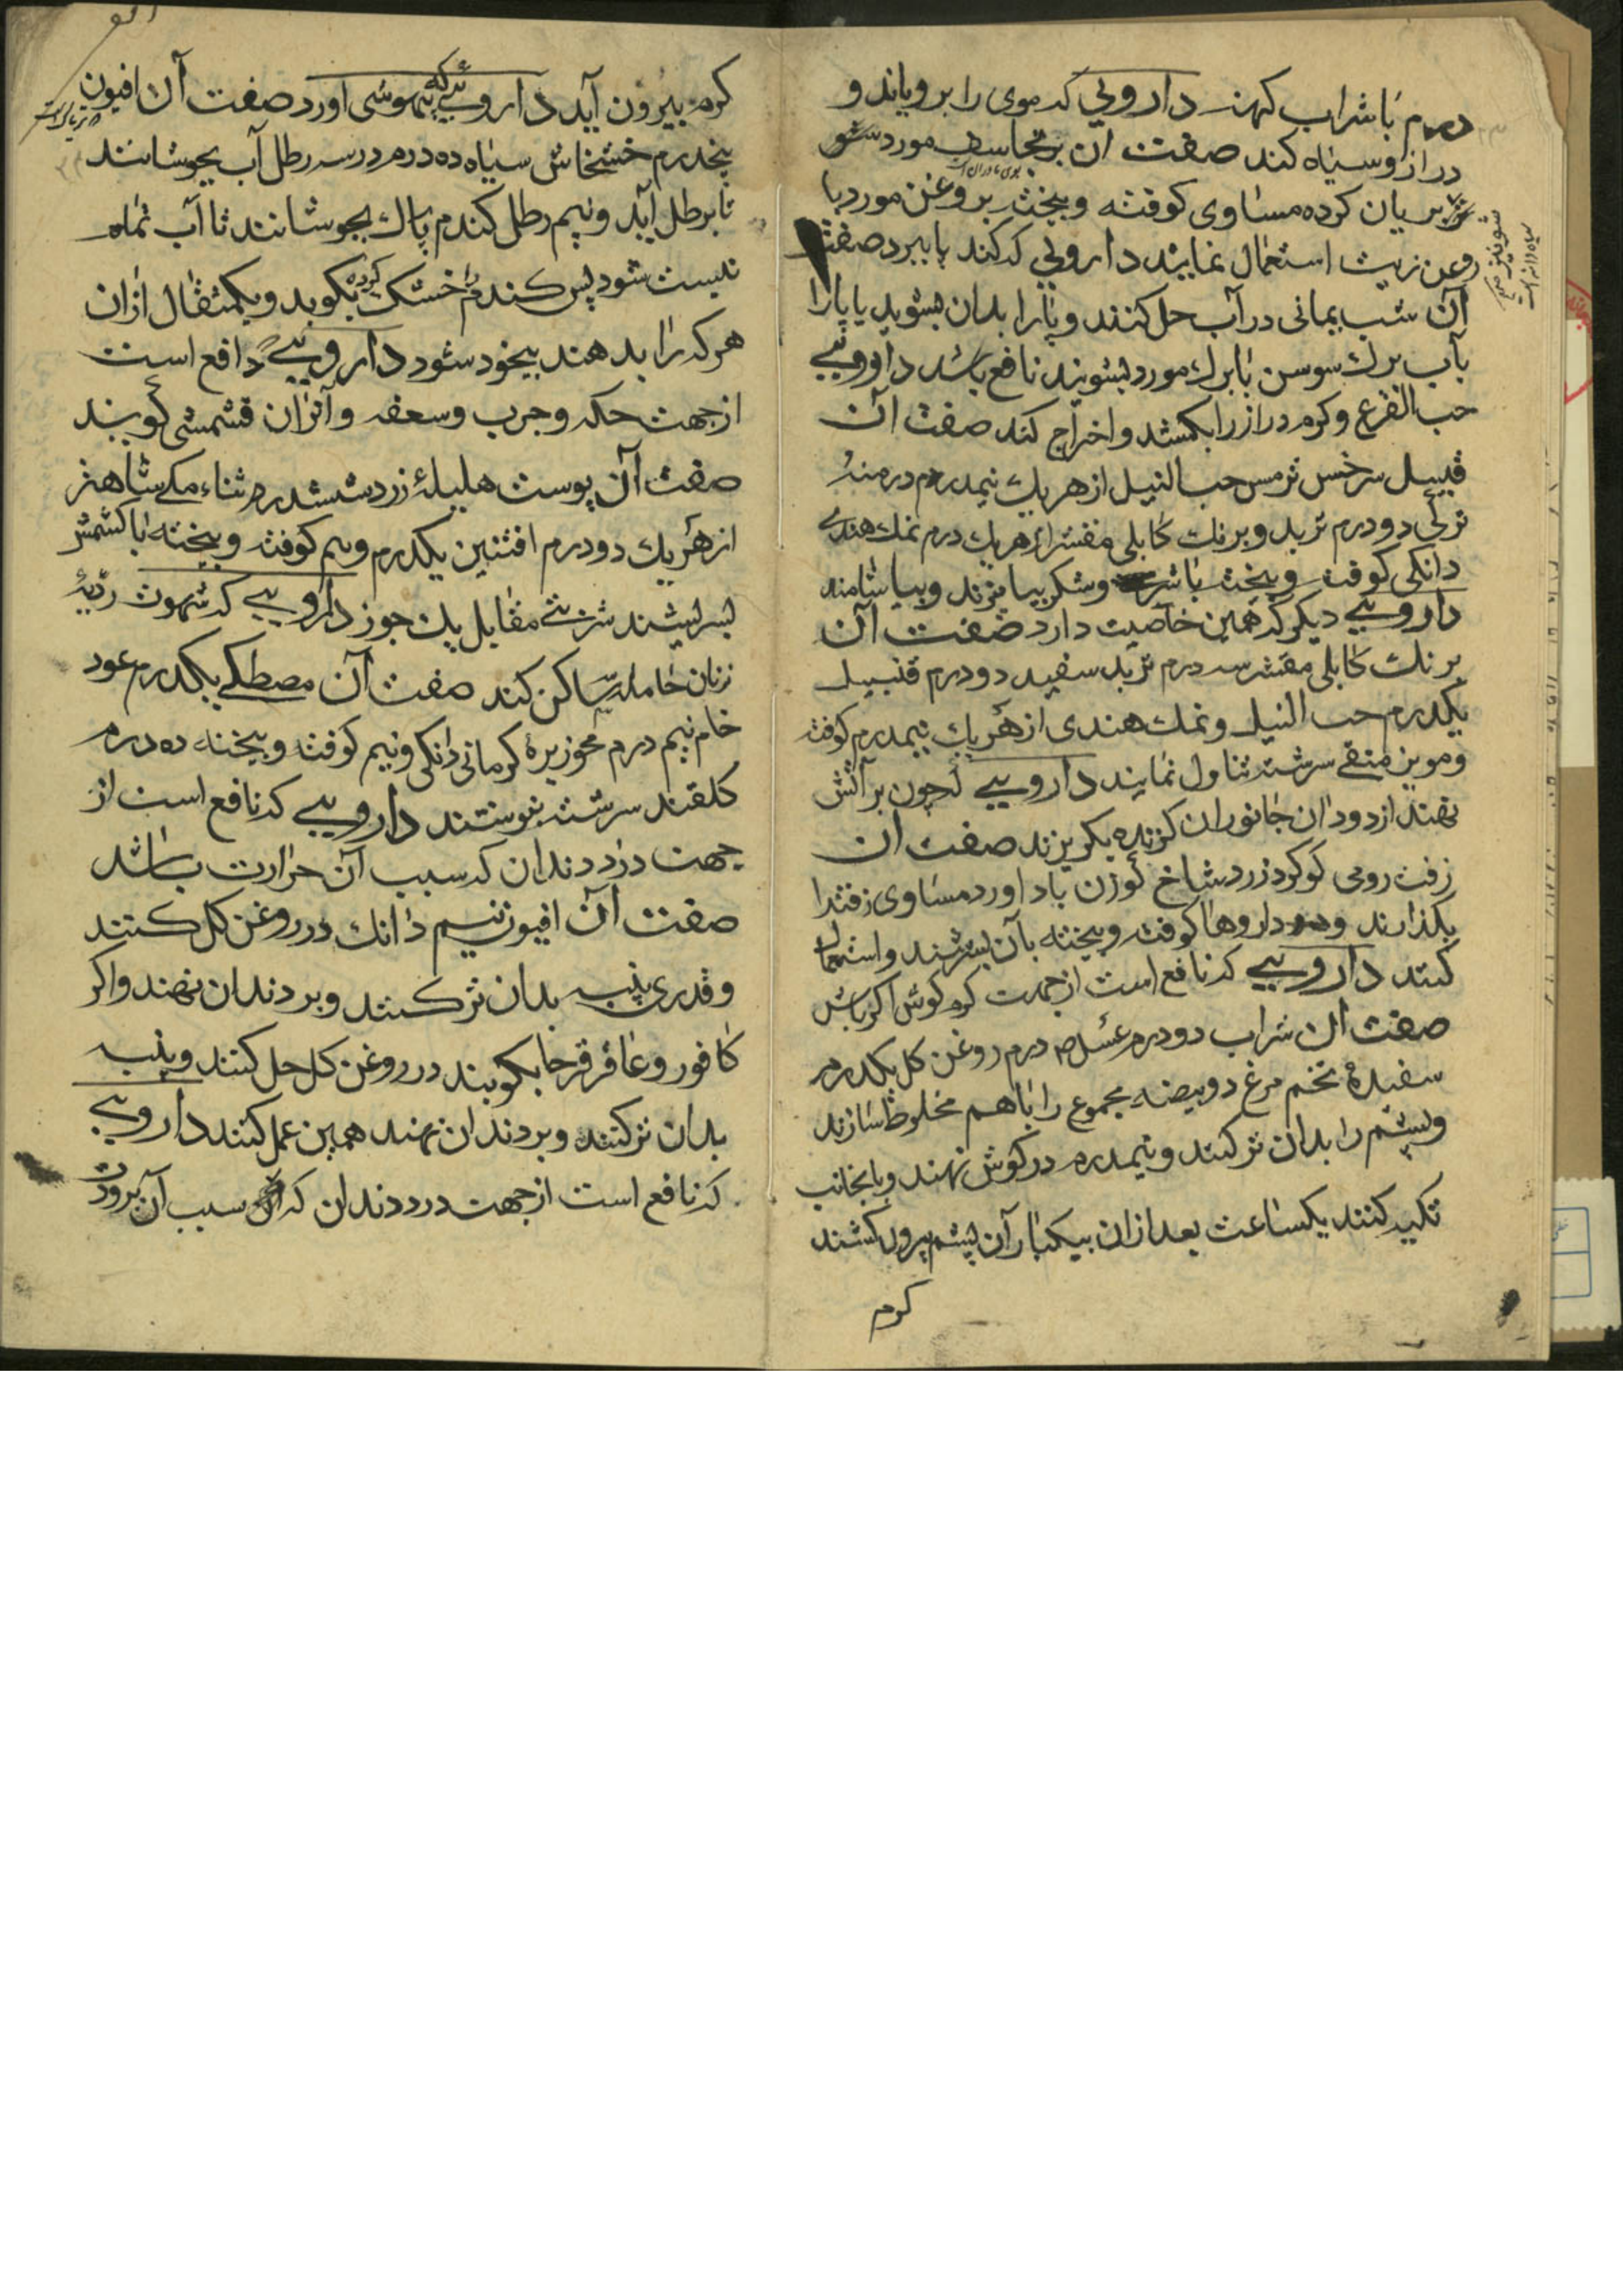 درم با شراب کهنه دارویی که موی را برویاند و
دراز و سیاه کند صفت آن برنجاسف مورد شو
بوی مادران است
نیز بریان کرده مساوی کوفته و بیخته بروغن مورد با
شونیز
سیاه دانه است
روغن زیت استعمال نمایند دارویی که کند پا ببرد صفت
آن شب یمانی در آب حل کنند و پا را بدان بشوید یا پا را
بآب برک سوسن با برک مورد بشویند نافع باشد دارویی
حب القرع و کرم دراز را بکشد و اخراج کند صفت آن
قنبیل سرخس ترمس حب النیل از هر یک نیمدرم درمنهٔ
ترکی دو درم تربد و برنک کابلی مقشر از هر یک درم نمک هندی
دانکی کوفته و بیخته با شیر و شکر بیامیزند و بیاشامند
دارویی دیکر که همین خاصیت دارد صفت آن
برنک کابلی مقشر سه درم تربد سفید دو درم قنبیل
یکدرم حب النیل و نمک هندی از هر یک نیمدرم کوفته
و مویز منقی سرشته تناول نمایند دارویی که چون بر آتش
نهند از دود آن جانوران کزنده بکریزند صفت آن
زفت رومی کوکرد زرد شاخ کوزن باداورد مساوی زفت را
بکدازند و داروها کوفته و بیخته بآن بسرشند و استعمال
کنند دارویی که نافع است از جهت کرم کوش اکر باشد
صفت آن شراب دو درم عسل درم روغن کل یکدرم
سفیدهٔ تخم مرغ دو بیضه مجموع را با هم مخلوط سازند
و پشم را بدان تر کنند و نیمدرم در کوش نهند و بدانجانب
تکیه کنند یکساعت بعد از آن بیکبار آن پشم بیرون کشند
کرم
کرم بیرون آید دارویی که بیهوشی آورد صفت آن افیون
پنجدرم خشخاش سیاه ده درم در سه رطل آب بجوشانند
تا برطل آید و نیم رطل کندم پاک بجوشانند تا آب تمام
نیست شود پس کندم را خشک کرده بکوبد و یکمثقال از آن
هر که را بدهند بیخود شود دارویی که دافع است
از جهت حکه و جرب و سعفه و آنرا آن قشمشی کویند
صفت آن پوست هلیلهٔ زرد ششدرم ثناء مکی شاهتر
از هر یک دو درم افتنین یکدرم و نیم کوفته و بیخته با کشمش
بسرشند شربتی مقابل یک جوز دارویی که شهوت ردیهٔ
زنان حامله را ساکن کند صفت آن مصطکی یکدرم عود
خام نیم درم زیرهٔ کرمانی دانکی و نیم کوفته و بیخته ده درم
کلقند سرشته بنوشند دارویی که نافع است از
جهت درد دندان که سبب آن حرارت باشد
صفت آن افیون نیم دانک در روغن کل کنند
و قدری پنبه بدان تر کنند و بر دندان نهند و اکر
کافور و عاقرقرحا بکوبند در روغن کل حل کنند و پنبه
بدان تر کنند و بر دندان نهند همین عمل کنند دارویی
که نافع است از جهت درد دندان که سبب آن برودت